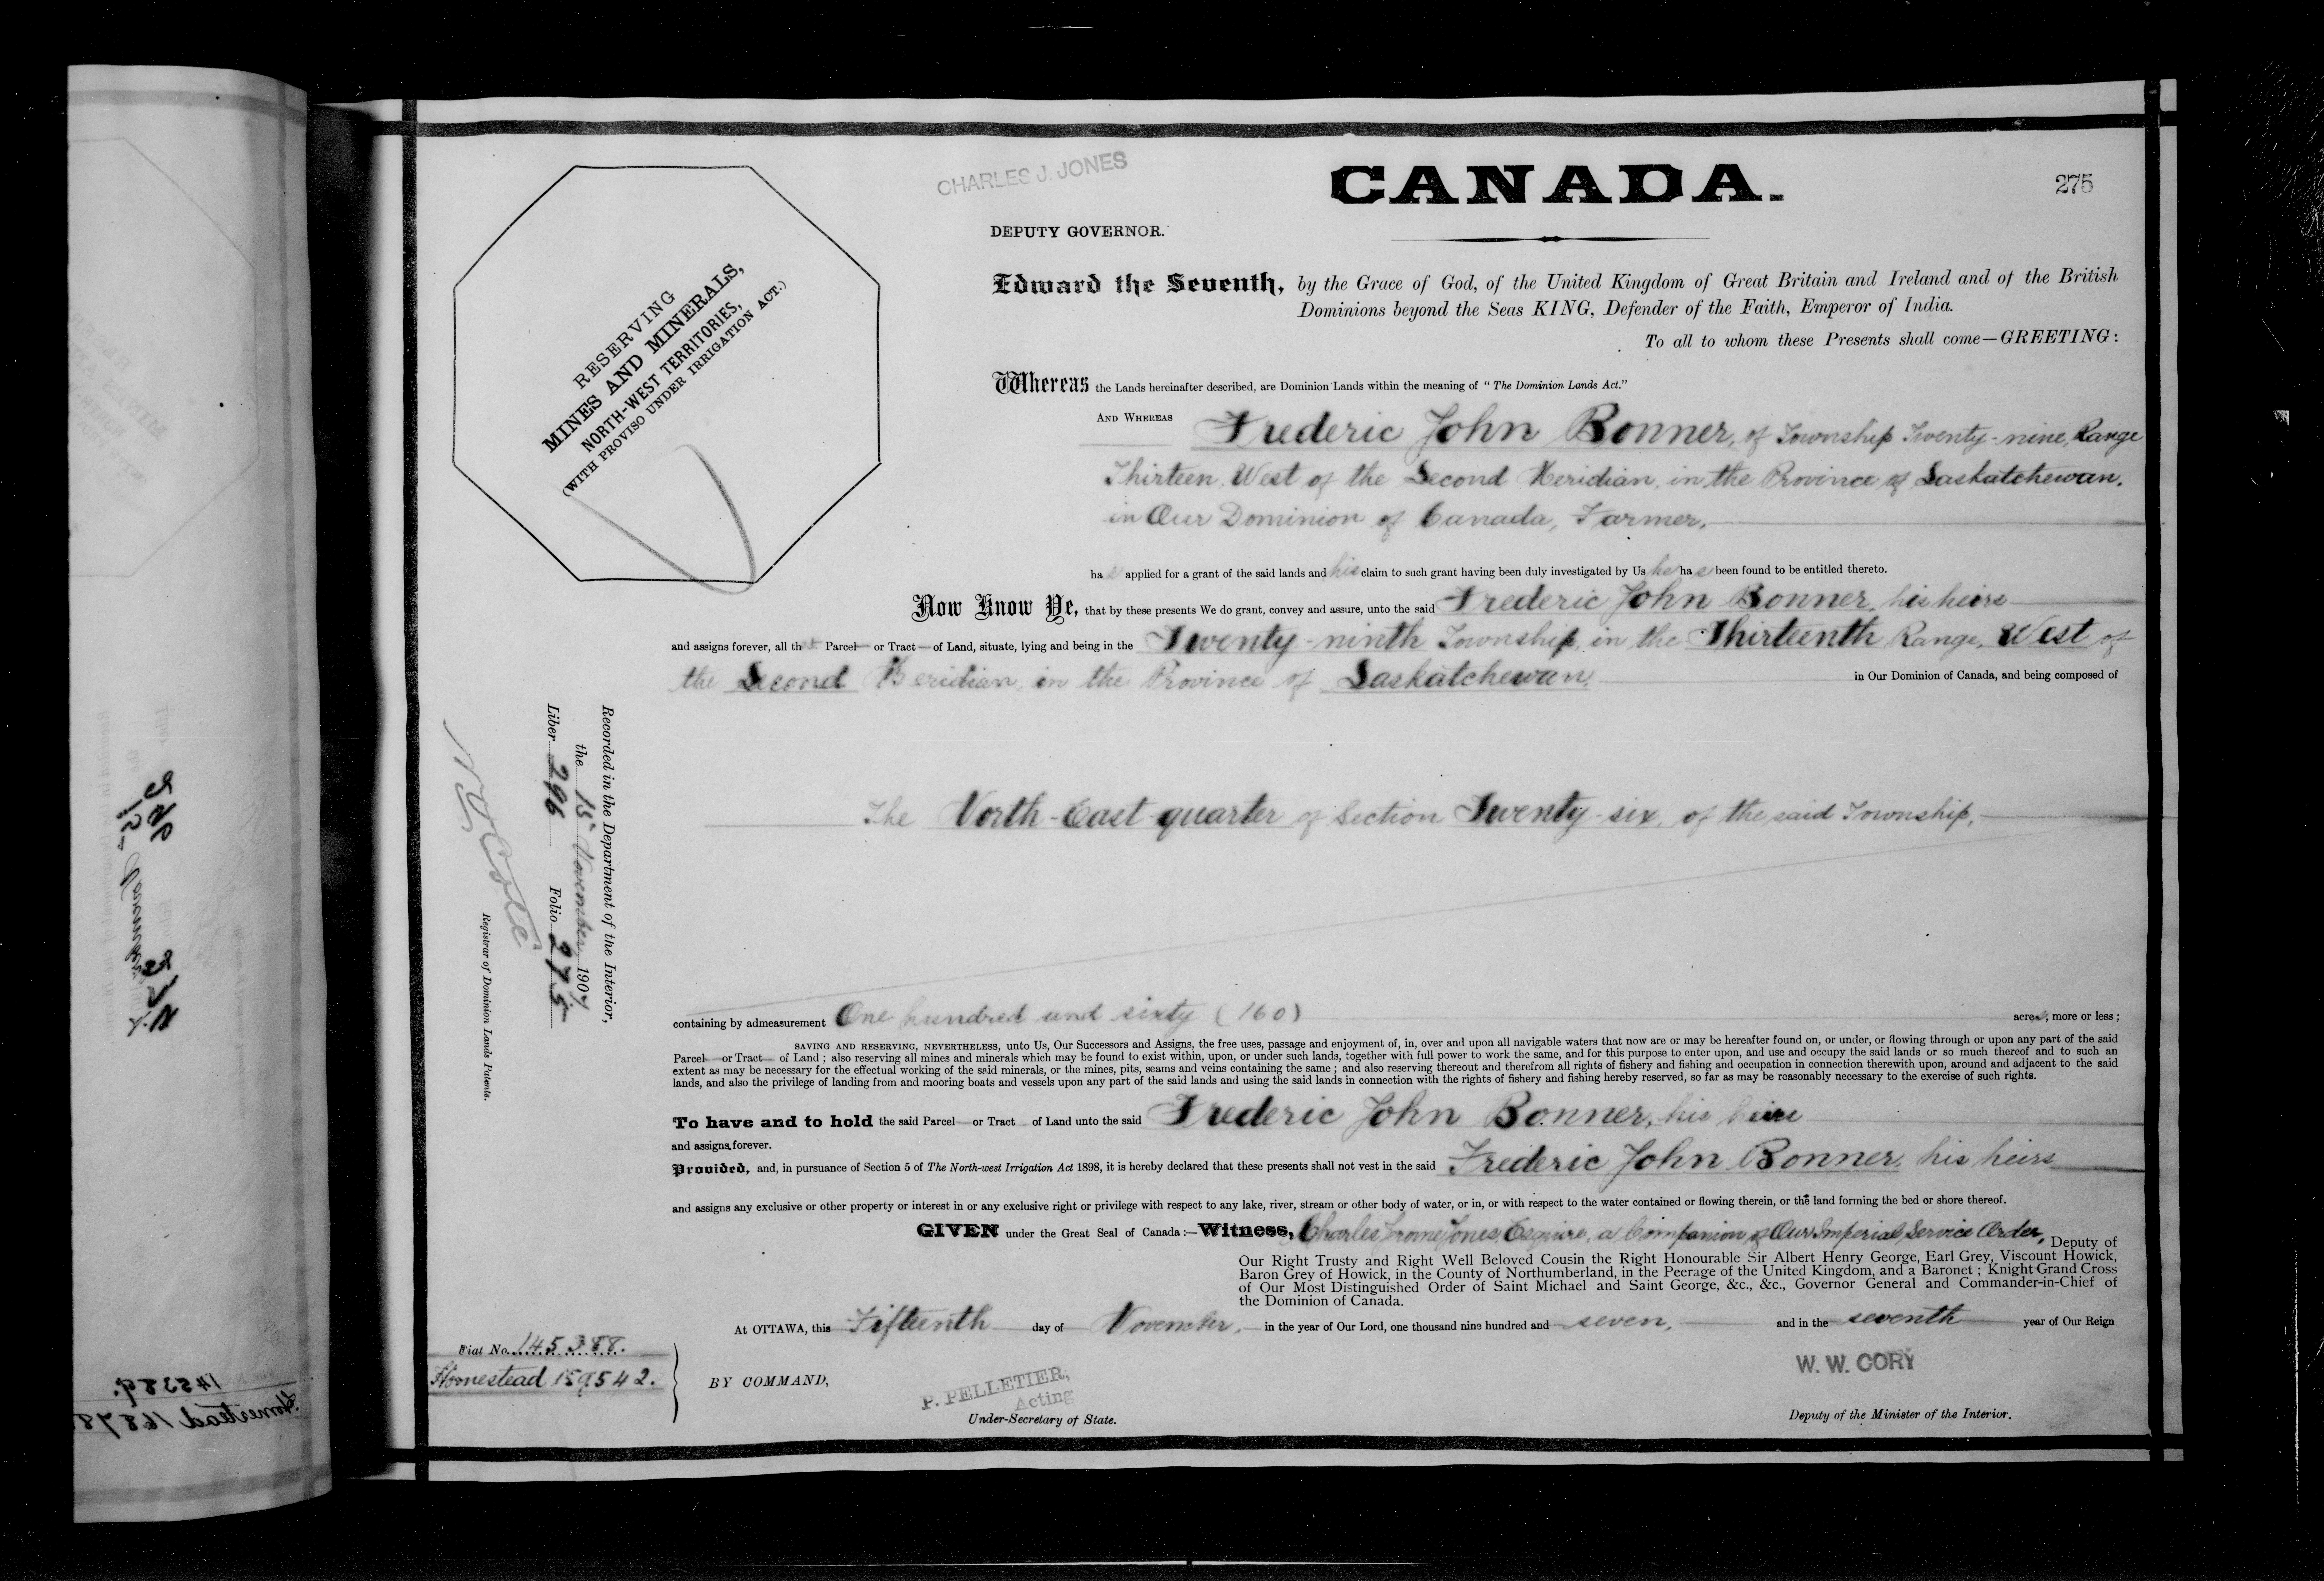 CHARLES J. JONES
CANADA.
275
DEPUTY GOVERNOR.
RESERVING
MINES AND MINERALS,
NORTH-WEST TERRITORIES,
(WITH PROVISO UNDER IRRIGATION ACT.)
Edward the Seventh, by the Grace of God, of the United Kingdom of Great Britain and Ireland and of the British
Dominions beyond the Seas KING, Defender of the Faith, Emperor of India.
To all to whom these Presents shall come—GREETING:
Whereas the Lands hereinafter described, are Dominion Lands within the meaning of "The Dominion Lands Act."
AND WHEREAS Frederic John Bonner, of Township Twenty-nine, Range
Thirteen, West of the Second Meridian, in the Province of Saskatchewan,
in Our Dominion of Canada, Farmer,
has applied for a grant of the said lands and his claim to such grant having been duly investigated by Us he has been found to be entitled thereto.
Now Know Ye, that by these presents We do grant, convey and assure, unto the said Frederic John Bonner, his heirs
and assigns forever, all that Parcel or Tract of Land, situate, lying and being in the Twenty-ninth Township, in the Thirteenth Range, West of
the Second Meridian, in the Province of Saskatchewan, in Our Dominion of Canada, and being composed of
The North-East quarter of Section Twenty-six, of the said Township,
Recorded in the Department of the Interior,
the 15th November, 1907
Liber 296 Folio 275
N O Coté
Registrar of Dominion Lands Patents.
containing by admeasurement One hundred and sixty (160) acres, more or less;
SAVING AND RESERVING, NEVERTHELESS, unto Us, Our Successors and Assigns, the free uses, passage and enjoyment of, in, over and upon all navigable waters that now are or may be hereafter found on, or under, or flowing through or upon any part of the said
Parcel or Tract of Land; also reserving all mines and minerals which may be found to exist within, upon, or under such lands, together with full power to work the same, and for this purpose to enter upon, and use and occupy the said lands or so much thereof and to such an
extent as may be necessary for the effectual working of the said minerals, or the mines, pits, seams and veins containing the same; and also reserving thereout and therefrom all rights of fishery and fishing and occupation in connection therewith upon, around and adjacent to the said
lands, and also the privilege of landing from and mooring boats and vessels upon any part of the said lands and using the said lands in connection with the rights of fishery and fishing hereby reserved, so far as may be reasonably necessary to the exercise of such rights.
To have and to hold the said Parcel or Tract of Land unto the said Frederic John Bonner, his heirs
and assigns forever.
Provided, and, in pursuance of Section 5 of The North-west Irrigation Act 1898, it is hereby declared that these presents shall not vest in the said Frederic John Bonner, his heirs
and assigns any exclusive or other property or interest in or any exclusive right or privilege with respect to any lake, river, stream or other body of water, or in, or with respect to the water contained or flowing therein, or the land forming the bed or shore thereof.
GIVEN under the Great Seal of Canada:—Witness, Charles Jerome Jones, Esquire, a Companion of Our Imperial Service Order, Deputy of
Our Right Trusty and Right Well Beloved Cousin the Right Honourable Sir Albert Henry George, Earl Grey, Viscount Howick,
Baron Grey of Howick, in the County of Northumberland, in the Peerage of the United Kingdom, and a Baronet; Knight Grand Cross
of Our Most Distinguished Order of Saint Michael and Saint George, &c., &c., Governor General and Commander-in-Chief of
the Dominion of Canada.
At OTTAWA, this Fifteenth day of November, in the year of Our Lord, one thousand nine hundred and seven, and in the seventh year of Our Reign
Fiat No. 145388.
Homestead 159542.
BY COMMAND,
P. PELLETIER,
Acting
Under-Secretary of State.
W. W. CORY
Deputy of the Minister of the Interior.
145389.
Homestead 16878